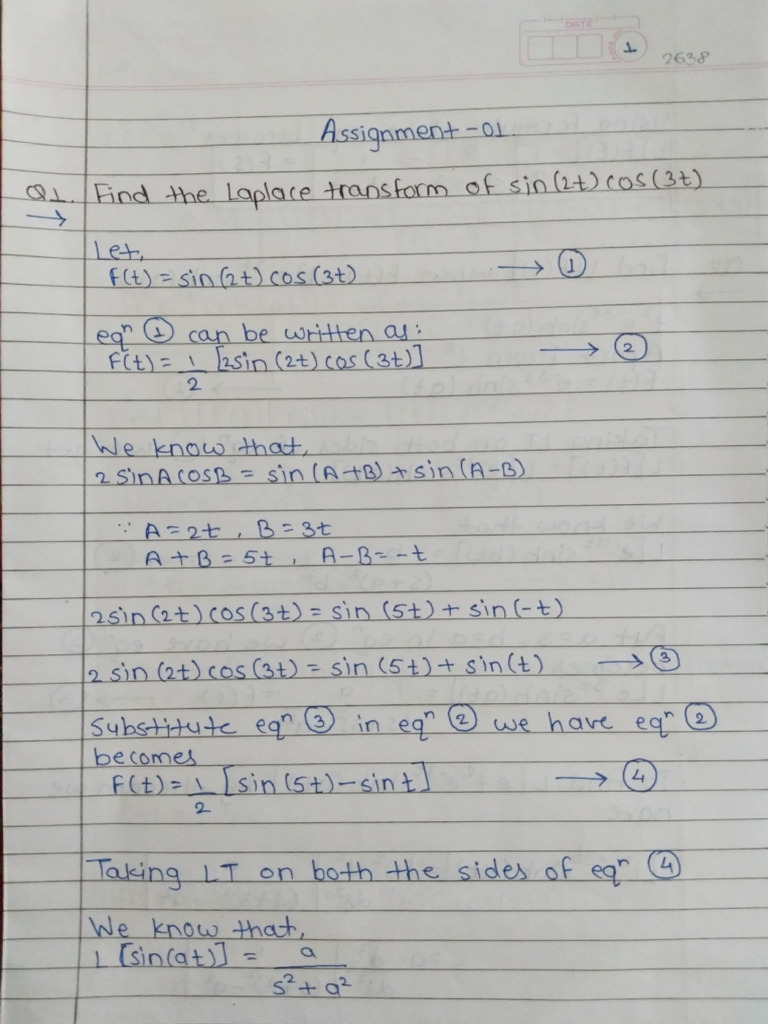 DATE
1
2638
Assignment-01.
Q1. Find the Laplace transform of sin(2t)cos(3t)
→
Let,
f(t) = sin(2t)cos(3t) → ①
eqⁿ ① can be written as:
F(t) = 1/2 [2sin(2t)cos(3t)] → ②
We know that,
2 sinA cosB = sin(A+B) + sin(A-B)
∵ A = 2t , B = 3t
A + B = 5t , A-B = -t
2sin(2t)cos(3t) = sin (5t) + sin(-t)
2 sin (2t) cos(3t) = sin(5t) + sin(t) → ③
Substitute eqⁿ ③ in eqⁿ ② we have eqⁿ ②
becomes
F(t) = 1/2 [sin(5t) - sint] → ④
Taking LT on both the sides of eqⁿ ④
We know that,
L [sin(at)] = a/(s² + a²)